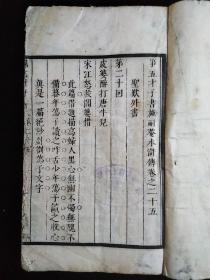 第五才子書施耐菴水滸傳卷之二十五
聖歎外書
第二十回
虔婆醉打唐牛兒
宋江怒殺閻婆惜
此篇借題描寫婦人黑心無幽不燭無醜不
備暮年蕩子讀之咋舌少年蕩子讀之收心
真是一篇絕妙針劄蕩子文字